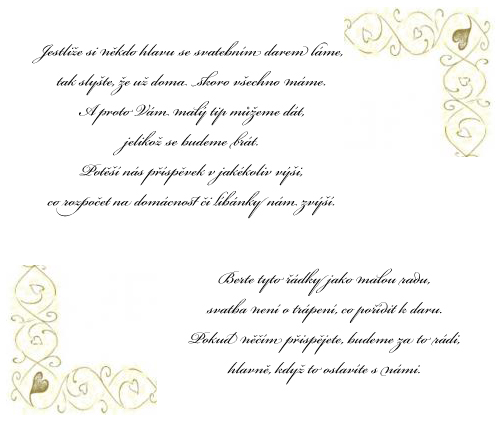 Jestliže si někdo hlavu se svatebním darem láme,
tak slyšte, že už doma skoro všechno máme.
A proto Vám malý tip můžeme dát,
jelikož se budeme brát.
Potěší nás příspěvek v jakékoliv výši,
co rozpočet na domácnost či líbánky nám zvýší.
Berte tyto řádky jako malou radu,
svatba není o trápení, co pořídit k daru.
Pokud něčím přispějete, budeme za to rádi,
hlavně, když to oslavíte s námi.